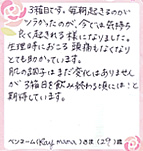 3箱目です。毎朝起きるのが
ツラかったのが、今では気持ち
良く起きれる様になりました。
生理時におこる頭痛もなくなり
とても助かっています。
肌の調子はまだ変化はありません
が3箱目を飲み終わる頃には…と
期待しています。
ペンネーム(Kay mama)さま(29)歳